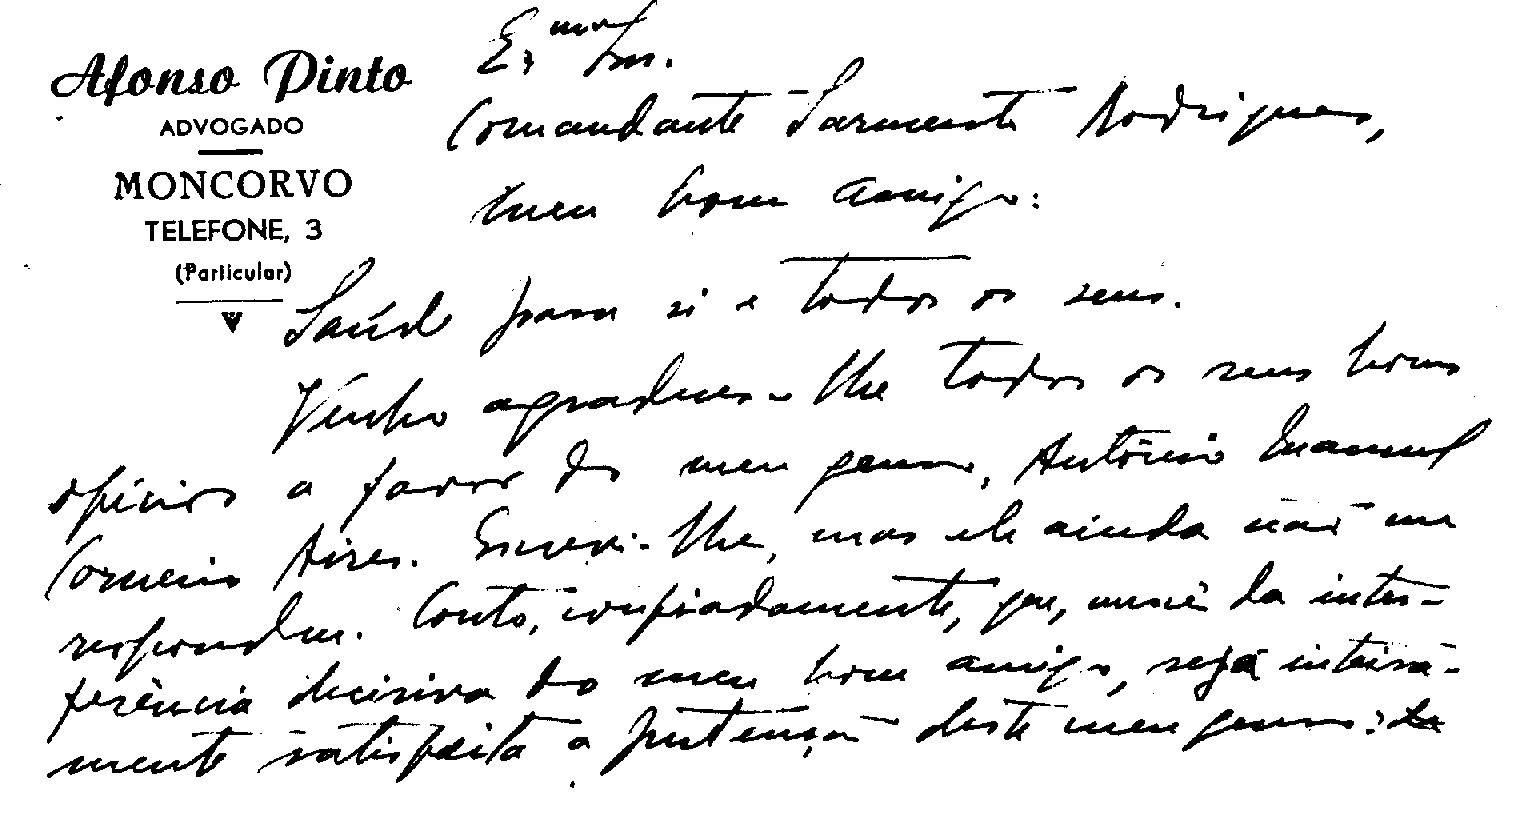 Afonso Pinto
ADVOGADO
MONCORVO
TELEFONE, 3
(Particular)
Ex.mo Snr.
Comandante Sarmento Rodrigues,
meu bom amigo:
Saúde para si e todos os seus.
Venho agradecer-lhe todos os seus bons
ofícios a favor do meu genro, António Manuel
Carneiro Aires. Escrevi-lhe, mas ele ainda não me
respondeu. Conto, confiadamente, que, mercê da inter-
ferência decisiva do meu bom amigo, seja inteira-
mente satisfeita a pretenção deste meu genro: da